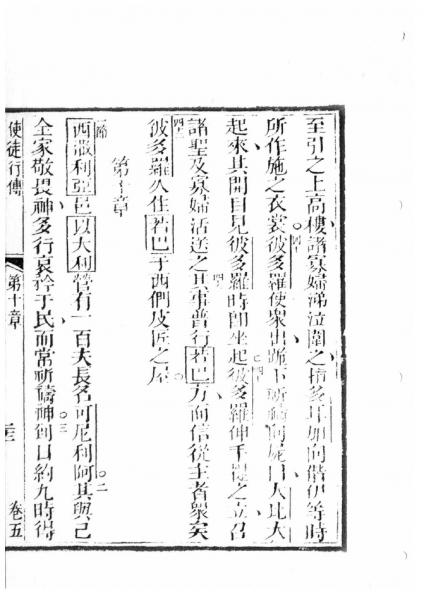 至引之上高樓諸寡婦涕泣圍之指多耳加向偕伊等時
所作施之衣裳彼多羅使眾出跪下祈禱向屍曰大比大
起來其開目見彼多羅時即坐起彼多羅伸手援之立召
諸聖及寡婦活送之其事普行若巴方而信從主者眾矣
彼多羅久住若巴于西們皮匠之屋
第十章
一節 西灑利亞邑以大利營有一百夫長名可尼利阿其與己
二
全家敬畏神多行哀矜于民而常祈禱神到日約九時得
三
使徒行傳 第十章 卷五